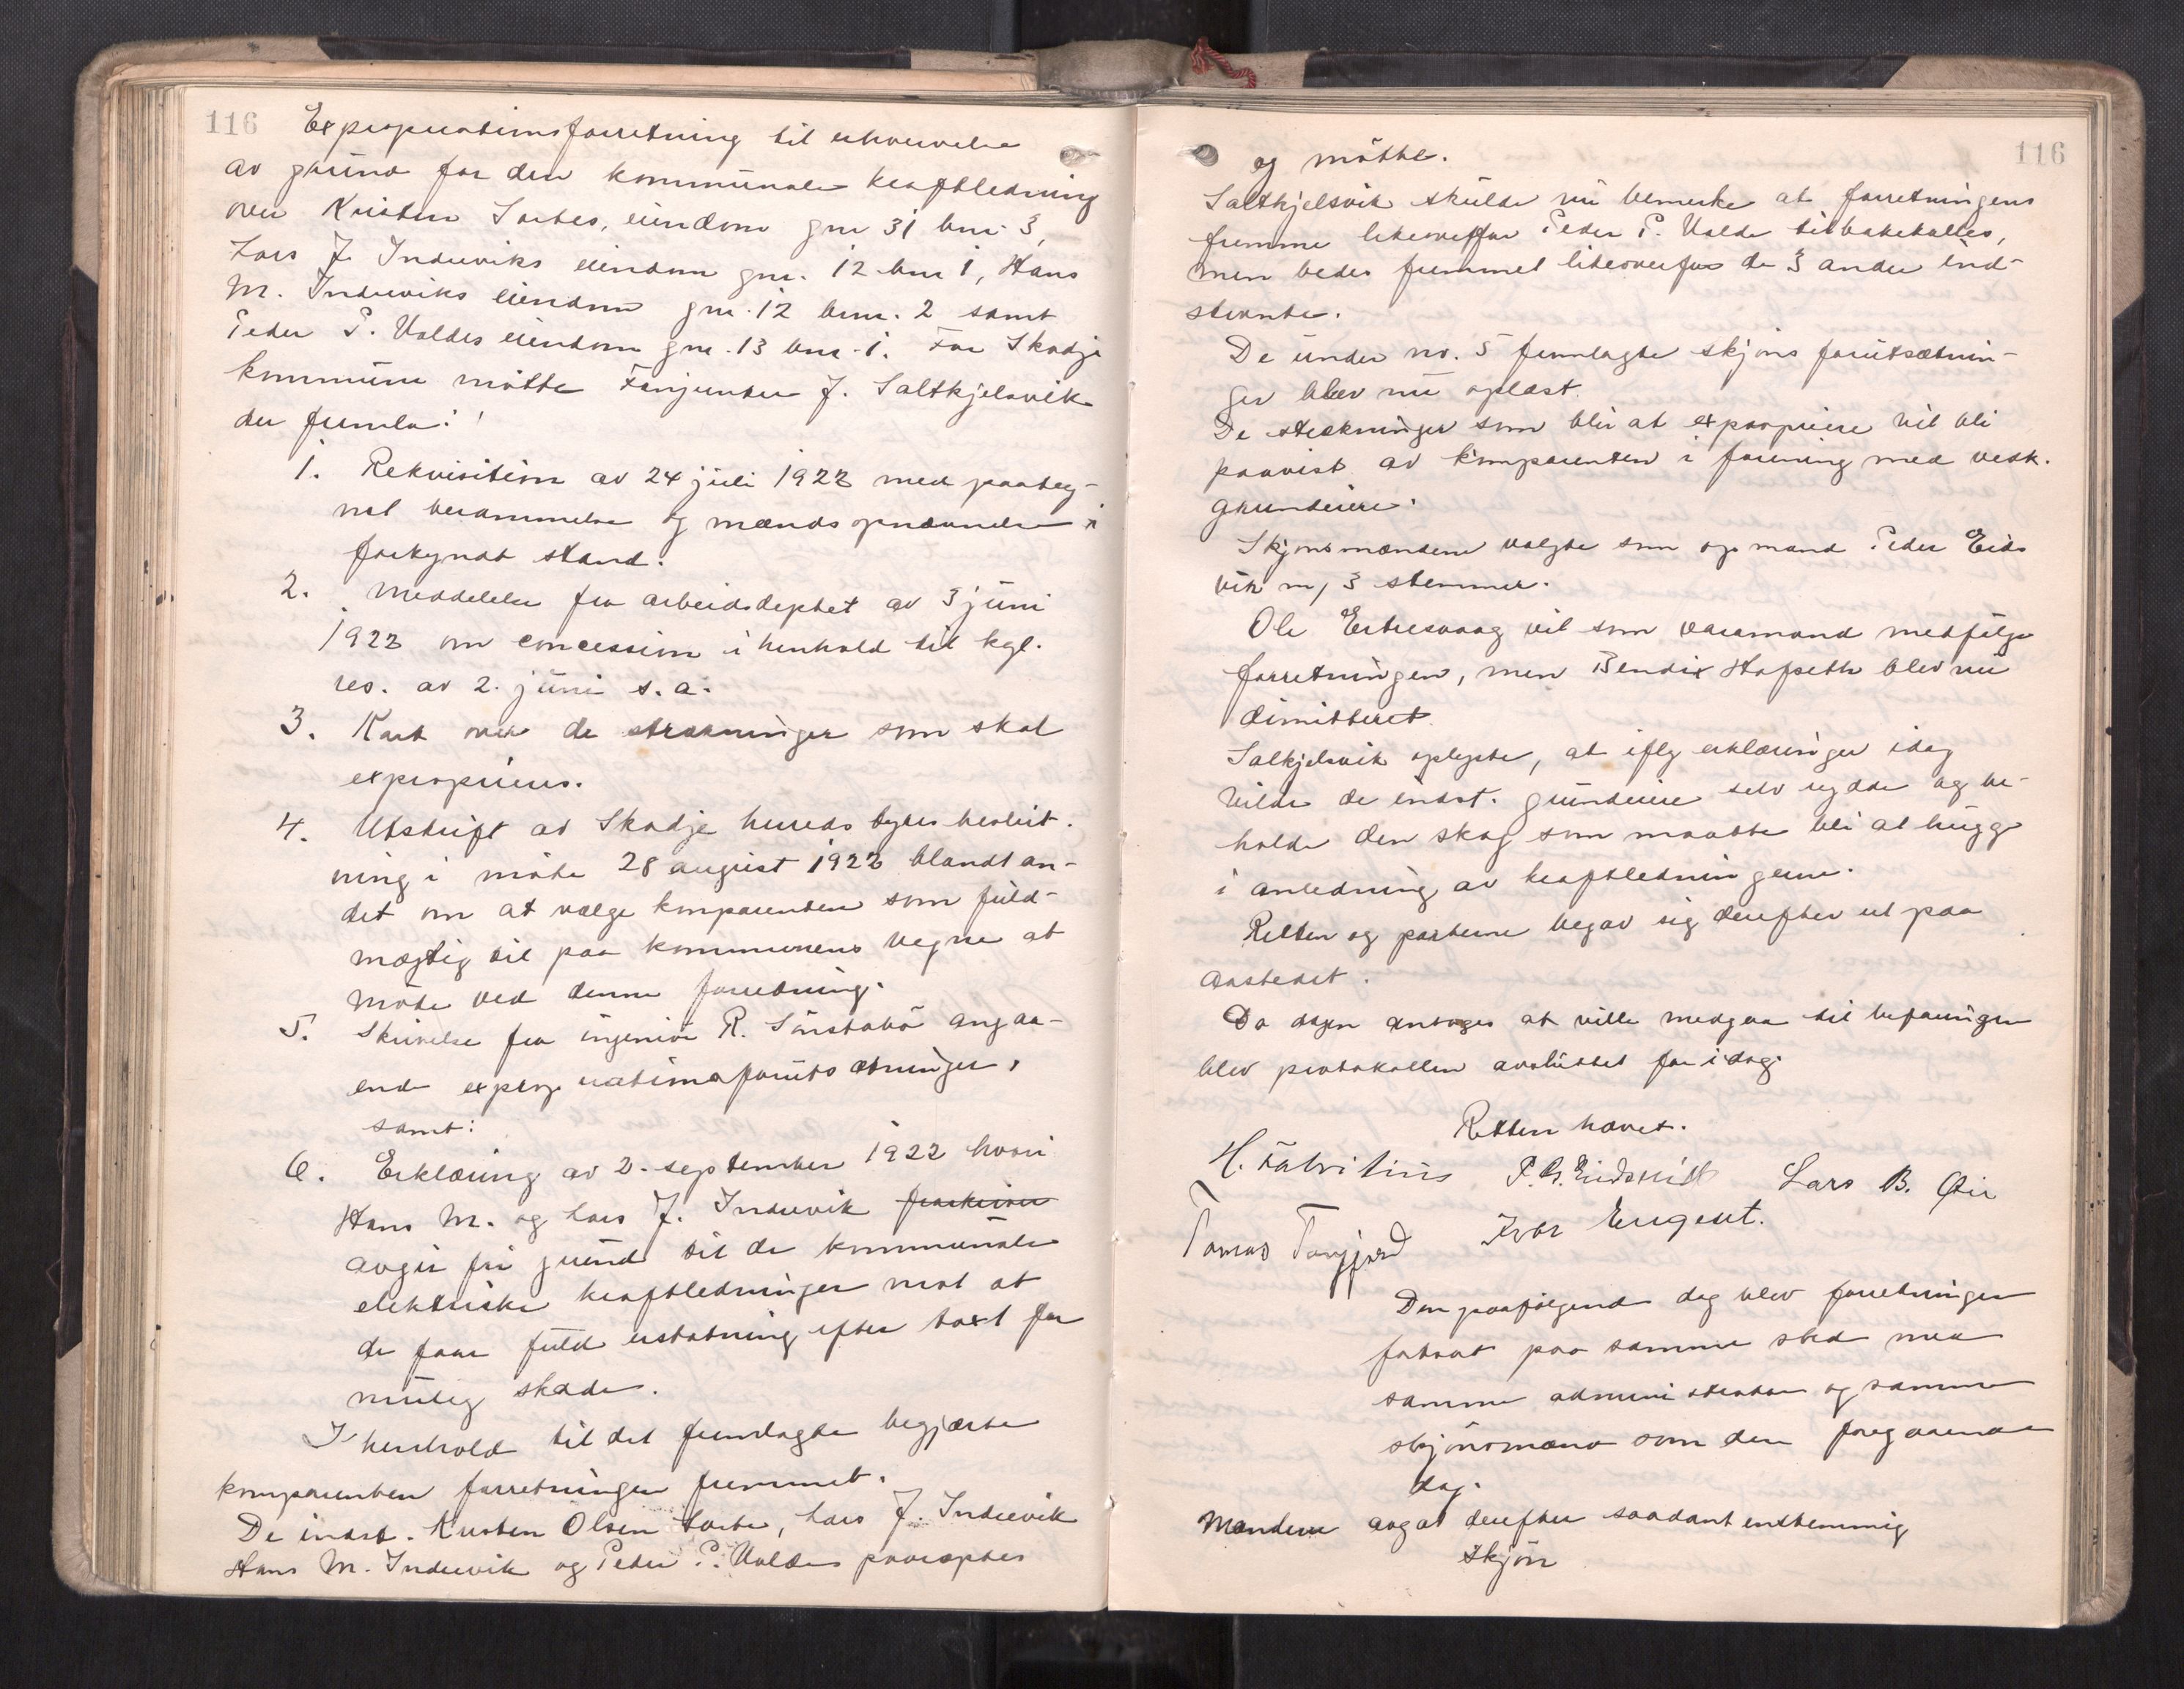 116
Expropriationsforretning til erhvervelse
av grund for den kommunale kraftledning
over Kristen Sortes, eiendom gnr 31 bnr. 3,
Lars J. Indreviks eiendom gnr. 12 bnr 1, Hans
M. Indreviks eiendom gnr. 12 bnr. 2 samt
Peder P. Valdes eiendom gnr. 13 bnr. 1. For Skodje
kommune møtte J. Saltkjelsvik
der fremla:
1. Rekvisition av 24 juli 1922 med paateg-
net berammelse og mænds opnævnelse i
forkyndt stand.
2. Meddelelse fra arbeidsdeptet av 3 juni
1922 om concession i henhold til kgl.
res. av 2. juni s. a.
3. Kart over de strækninger som skal
exproprieres.
4. Utskrift av Skodje hereds tyres beslut-
ning i møte 28 august 1922 blandt an-
det om at vælge komparenten som fuld-
mægtig til paa kommunens vegne at
møte ved denne forretning.
5. Skrivelse fra ingeniør R. Sønstabø angaa-
ende expropriationsforutsætninger,
samt:
6. Erklæring av 2. september 1922 hvori
Hans M. og Lars J. Indrevik fraskriver
avgir fri grund til de kommunale
elektriske kraftledninger mot at
de faar fuld erstatning efter taxt for
mulig skade.
I henhold til det fremlagte begjærte
komparenten forretningen fremmet.
De indst. Kristen Olsen Sorte, Lars J. Indrevik
Hans M. Indrevik og Peder P. Valde paaroptes
116
og møtte.
Saltkjelsvik skulde nu bemerke at forretningens
fremme likeoverfor Peder P. Valde tilbakekalles,
men bedes fremmet likeoverfor de 3 andre ind-
stevnte.
De under no. 5 fremlagte skjøns forutsætnin-
ger blev nu oplæst.
De strækninger som blir at expropriere vil bli
paavist av komparenten i forening med vedk.
grundeiere.
Skjønsmændene valgte som opmand Peder Eids
vik m/ 3 stemmer.
Ole Ertresvaag vil som varamand medfølge
forretningen, men Bendix Hofseth blev nu
dimitteret.
Salkjelsvik oplyste, at iflg erklæringer idag
vilde de indst. grundeiere selv rydde og be-
holde den skog som maatte bli at hugge
i anledning av kraftledningerne.
Retten og parterne begav sig derefter ut paa
aastedet.
Da dagen antages at ville medgaa til befaringen
blev protokollen avsluttet for idag.
Retten hævet.
H. Fabritius P. B. Eidsvik Lars B. Øie
Tomas Ivar Engeset.
Den paafølgende dag blev forretningen
fortsat paa samme sted med
samme administrator og samme
skjønsmænd som den foregaaende
dag.
Mændene avgav derefter saadant enstemmig
skjøn